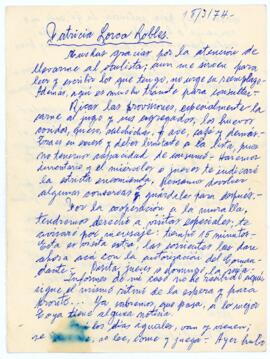 18/3/74.-
Patricia Lorca Robles.
Muchas gracias por la atención de
llevarme al dentista; aun me sirven para
leer y escribir los que tengo, no urge su reemplazo.
Además, aquí es mucho trámite para consultas.-
Ricas las provisiones, especialmente la
carne al jugo y sus agregados, los huevos
duros, queso, salchichas, ave, café y demás.
Eras en exceso y debes limitarte a la lista, pues
no tenemos capacidad de consumo. Haremos
inventario y el miércoles o jueves te indicaré
la próxima encomienda. Pensamos devolver
algunas conservas o guardarlas para después.
Por la cooperación a la
tendremos derecho a visitas especiales; te
avisaré por mensaje; tiempo 15 minutos.-
Esta es visita extra, las corrientes las dan
ahora acá con la autorización del Coman-
dante.- Visita, jueves o domingo, la paga.
Informe de mi caso no he recibido aquí;
sigue el mismo ritmo de la espera y para
pronto... Ya sabremos que pasa, a lo mejor
Goya tiene alguna noticia.
Los días iguales, van y vienen;
se lee, come y juega.- Ayer hubo